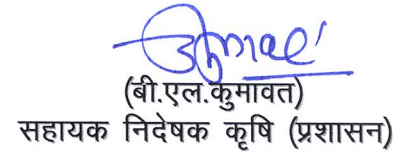 (बी.एल.कुमावत)
सहायक निदेषक कृषि (प्रशासन)